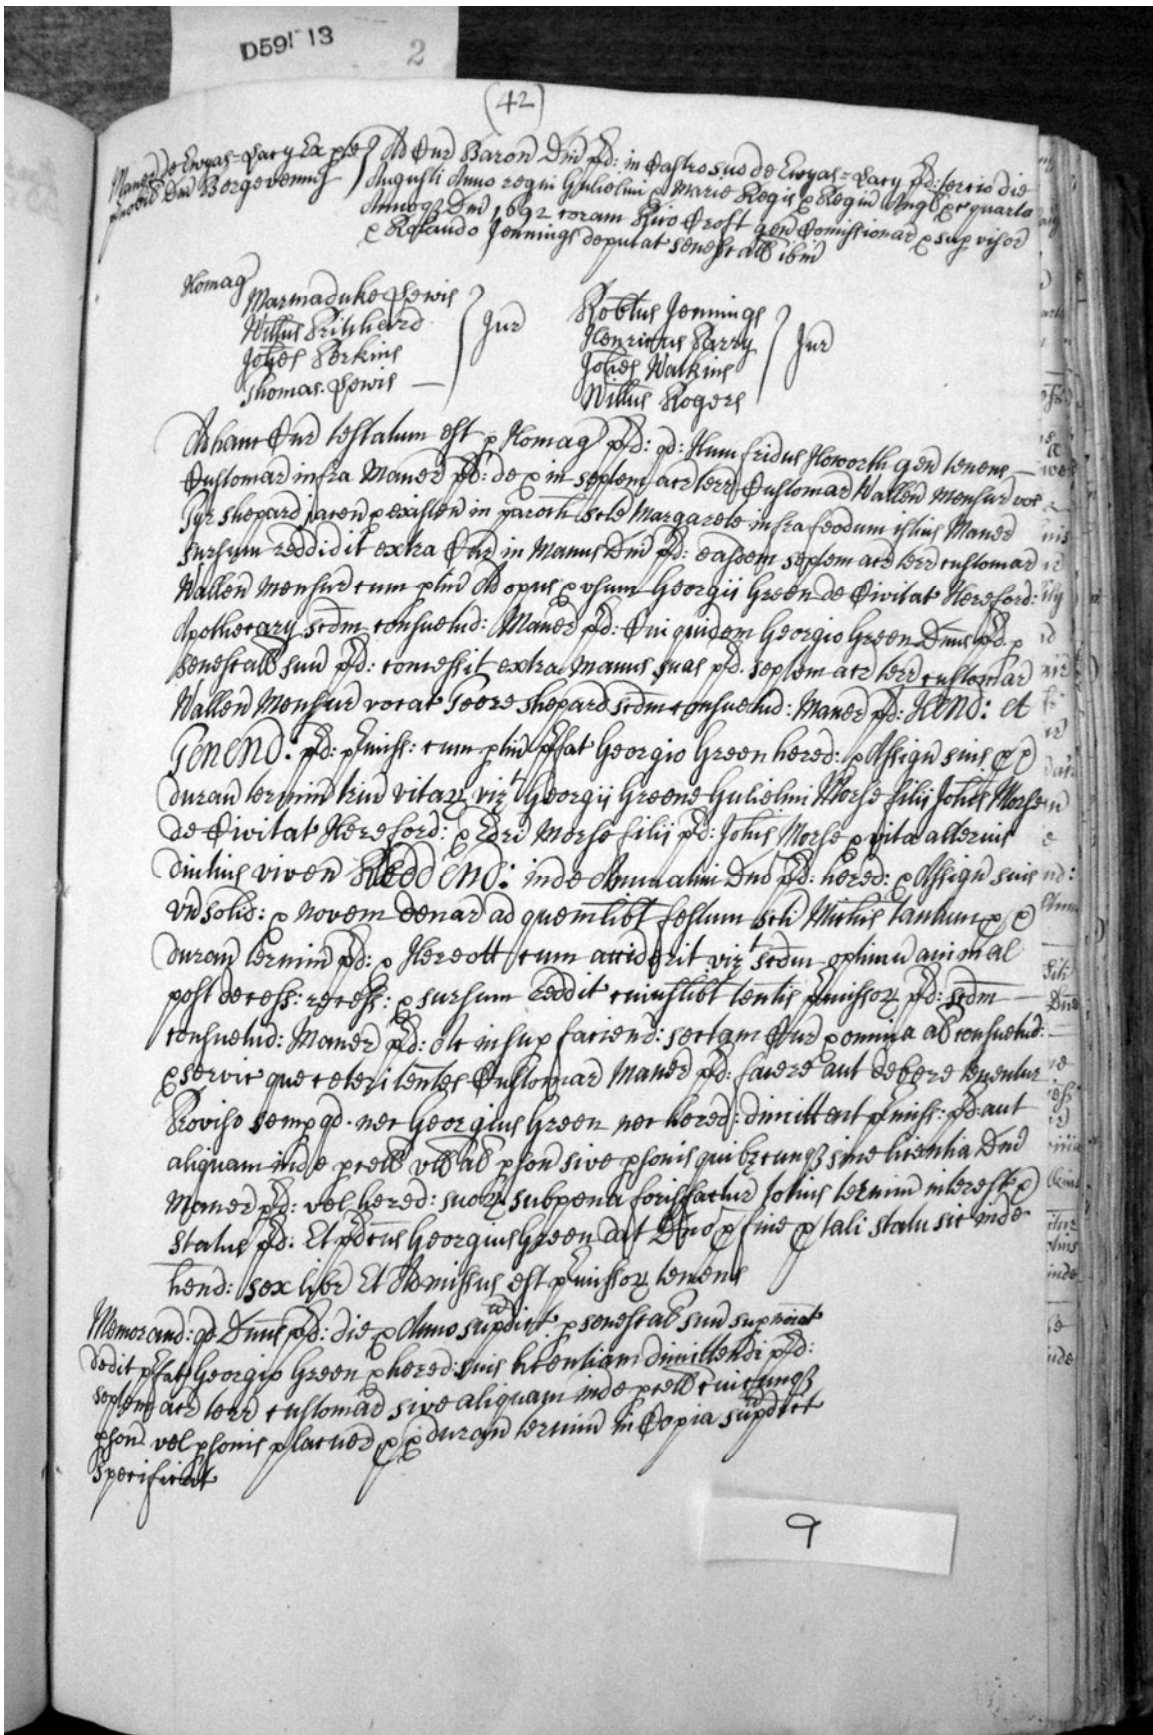 D591 13
2
(42)
Maner de Ewyas=Lacy Ex pte
pnobil Dni Bergevenny
Ad Cur Baron Dni pd: in Castro suo de Ewyas=Lacy pd: tercio die
Augusti Anno regni Gulielmi & Marie Regis & Regin Angl &c quarto
Annoq3 Dni 1692 coram Rico Croft gen Comissionar & supvisor
& Rolando Jennings deputat senescall ibm
Homag
Marmaduke Lewis
Willus Prichard
Johes Perkins
Thomas Lewis —
Jur
Robtus Jennings
Henricus Parry
Johes Watkins
Willus Rogers
Jur
Ad hanc Cur testatum est p Homag pd: qd: Humfridus Howorth gen tenens —
Customar infra Maner pd: de & in septem acr terr Customar Wallen Mensur voc
Tyr Shepard jacen & existen in paroch scte Margarete infra feodum istius Maner
sursum reddidit extra Cur in Manus Dni pd: easdem septem acr terr customar
Wallen Mensur cum ptin Ad opus & usum Georgii Green de Civitat Hereford:
Apothecary scdm consuetud: Maner pd: Cui quidem Georgio Green Dnus pd. p
senescall suu pd: concessit extra manus suas pd. septem acr terr customar
Wallen Mensur vocat Teere Shepard scdm consuetud: Maner pd: Hend: et
Tenend: pd: pmiss: cum ptin pfat Georgio Green hered: & Assign suis p &
duran termin triu vitar vizt Georgii Greene Gulielmi Morse filii Johis Morse
de Civitat Hereford: & Edri Morse filii pd: Johis Morse & vita alterius
diutius viven Reddend: inde Annuatim Dno pd: hered: & Assign suis
un solid: & novem denar ad quemlibt festum scti Michis tantum p &
duran termin pd: & Heriott cum acciderit vizt scdm optimu animal
post decess: recess: & sursum reddit cuiuslibt tentis pmissor pd: scdm —
consuetud: Maner pd: Ac insup faciend: sectam Cur & omnia al consuetud: —
& servic que ceteri tentes Customar Maner pd: facere aut debere tenentur
Proviso semp qd. nec Georgius Green nec hered: dimittent pmiss: pd: aut
aliquam inde pcell ull al pson sive psonis quibuscunq3 sine licentia Dni
Maner pd: vel hered: suor subpena forisfactur totius termini interest &
status pd: Et pdcus Georgius Green dat Dno p fine p tali statu sic inde
hend: sex libr Et Admissus est pmissor tenens
Memorand: qd Dnus pd: die & Anno supdict p senescal suu supnoiat
dedit pfat Georgio Green & hered: suis licentiam dimittendi pd:
septem acr terr customar sive aliquam inde pcell cuicunq3
pson vel psonis placuer p & duran termin in Copia supdict
Specificat
9